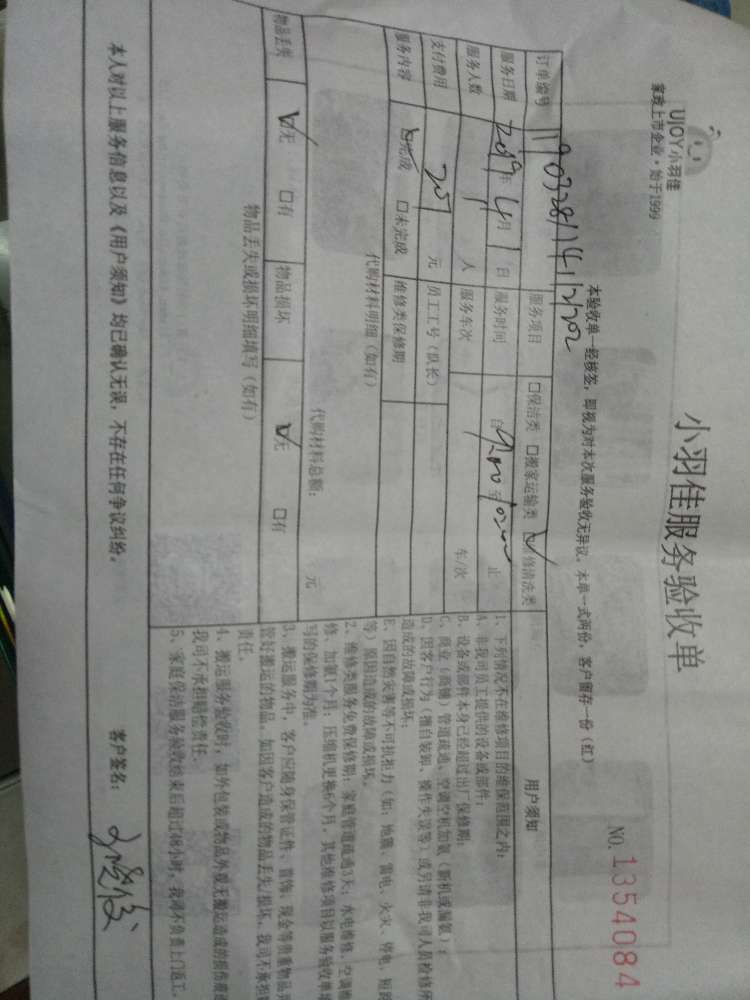 UJOY小羽佳
家政上市企业·始于1999
小羽佳服务验收单
NO. 1354084
本验收单一经核签,即视为对本次服务验收无异议,本单一式两份,客户留存一份(红)
订单编号
服务项目 □保洁类 □搬家运输类 修清洗类
服务日期 2019年4月1日 服务时间 自9:00至10:00止
服务人数 1人 服务车次 车/次
支付费用 元 员工工号(队长)
服务内容 完成 □未完成 维修类保修期
代购材料明细(如有)
代购材料总额: 元
物品丢失 无 □有 物品损坏 无 □有
物品丢失或损坏明细填写(如有)
用户须知
1、下列情况不在维修项目的维保范围之内:
A、非我司员工提供的设备或部件;
B、设备或部件本身已经超过出厂保修期;
C、商业(商铺)管道疏通、空调空机加氨(新机或漏氨);
D、因客户行为(擅自装卸、操作失误等)或另请非我司人员检修所
造成的故障或损坏;
E、因自然灾害等不可抗拒力(如:地震、雷电、火灾、停电、短路
等)原因造成的故障或损坏。
2、维修类服务免费保修期:家庭管道疏通3天;水电维修、空调维
修、加氨1个月;压缩机更换6个月。其他维修项目以服务验收单填
写的保修期为准。
3、搬运服务中,客户应随身保管证件、首饰、现金等贵重物品并
管好搬运的物品。如因客户造成的物品丢失/损坏,我司不承担
责任。
4、搬运服务验收时,如外包装或物品外观无搬运造成的损伤痕迹
我司不承担赔偿责任。
5、家庭保洁服务验收结束后超过48小时,我司不负责上门返工。
本人对以上服务信息以及《用户须知》均已确认无误,不存在任何争议纠纷。
客户签名: